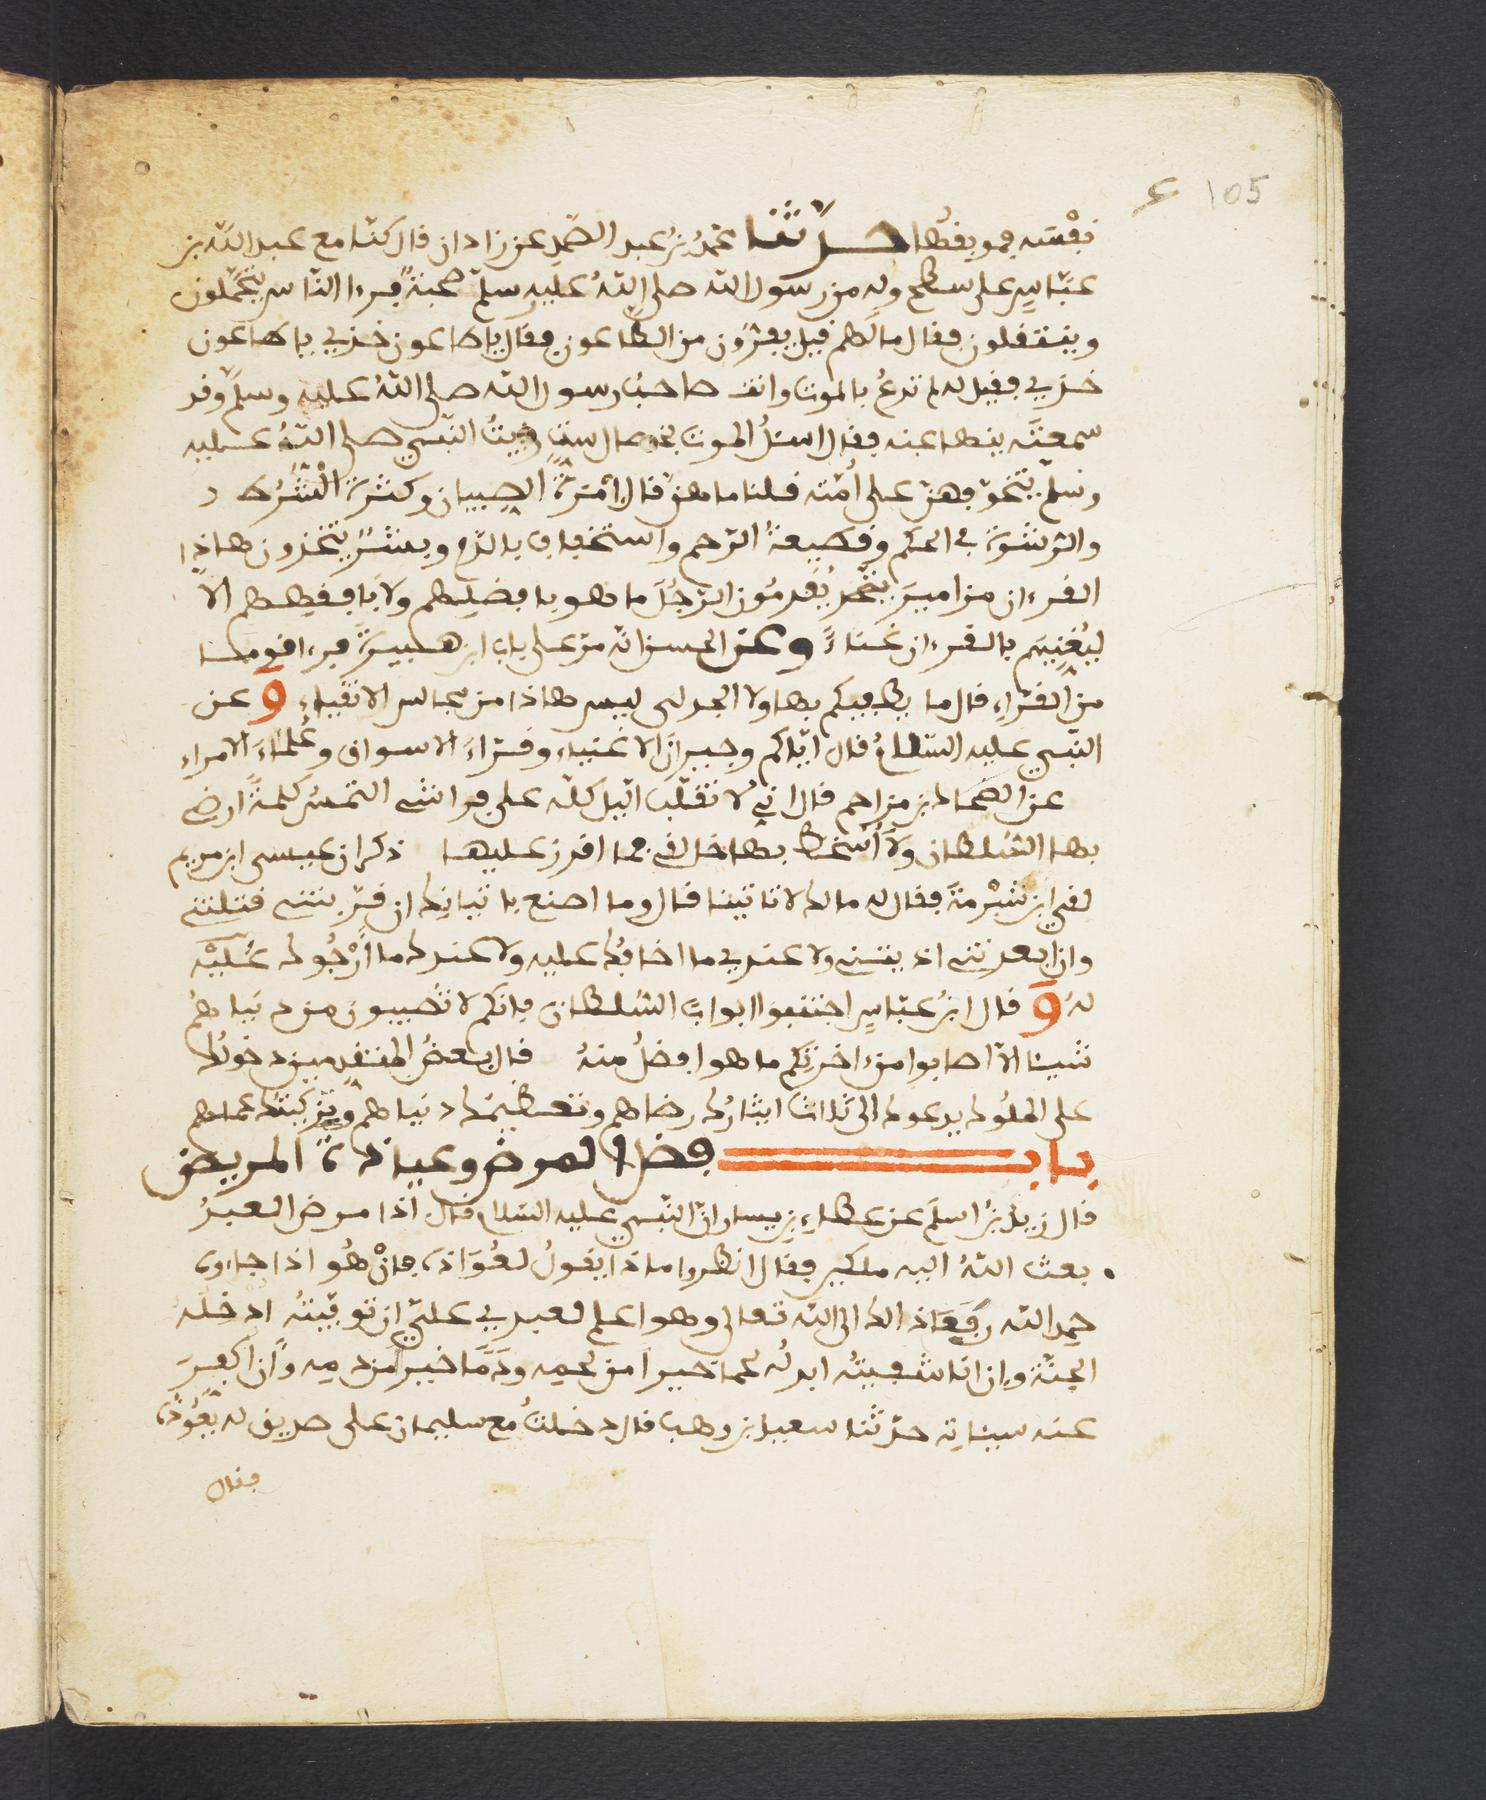 105
نفسه فهو يفطا حدّثنا محمدُ بنُ عبد الصّمد عن زاذان قال كنّا مع عبد اللّه بن
عبّاسٍ على سطح وله من رسول اللّه صلى اللّهُ عليه وسلّم صحبةً فرءا النّاس يتحمّلون
وينتقلون فقال ما لهم قيل يفرّون من الطّاعون فقال يا طاعون خذني يا طاعون
خذني فقيل له لم تدعُ بالموت وانت صاحبُ رسول اللّه صلى اللّهُ عليه وسلّم وقد
سمعتَه ينها عنه فقال اسئلُ الموت لخصال ستٍّ رايتُ النّبي صلى اللّهُ عليه
وسلّم يتخوّفهنّ على أمّته قلنا ما هنّ قال إمْرَةُ الصّبيان وكثرة الشُّرُط
والرّشوة في الحكم وقطيعةُ الرّحم واستخفاف بالدّم ونشئٌ يتّخذون هاذا
القرءان مزامير يُقدمُون الرّجُلَ ما هو بافضلِهم ولا بافقههم الاّ
ليُغنيَهم بالقرءان غناءً وعن الحسن انّه مرّ على باب ابن هبيرة فرءا قوما
من القرّاءِ قال ما يجلسكم بها ولا الجدلى ليس هاذا من مجالس الاتقياء وعن
النّبي عليه السّلامُ قال ايّاكم وجيرانَ الاغنياء وقرّاءَ الاسواق وعُلماءَ الامراءِ
عن الضّحاك بن مزاحم قال انّي لاتقلّب اللّيل كلّه على فراشي التمسُ كلمةً ارضي
بها السّلطان ولا أُسخط بها خالقي فما اقدر عليها ذكر ان عيسى ابن مريم
لقي ابن شُبْرُمَةَ فقال له ما لك لا تاتينا قال وما اصنع باتيانِك ان قرّبتني فتنتني
وان ابعدتني اذيتني ولا عندي ما اخافُك عليه ولا عندك ما ارْجُوك عَلَيْه
لهُ وقال ابنُ عبّاسٍ اجتنبوا ابوابَ السّلطان فانّكم لا تُصيبون من دنياهُم
شيئا الاّ اصابوا من ءاخرتكم ما هو افضلُ منهُ قال بعضُ المتقدمين دخولُك
على الملُوك يدعوك الى ثلاث ايثارُك رضاهم وتعظيمُك دنياهم وتزكيتُك عملهم
باب فضل المرض وعيادة المريض
قال زيدُ بنُ اسلمَ عن عطاءِ بن يسار انّ النّبي عليه السّلام قال اذا مرض العبدُ
بعث اللّهُ اليه ملكين فقال انظروا ماذا يقولُ لعُوّاده فانْ هُو اذا جاءوه
حمِد اللّه رَفَعَا ذالك الى اللّه تعالى وهو اعلم لعبدي عليّ ان توفّيتُه ادخله
الجنّة وان انا شفيتُه ابدلُه لحما خيرا من لحمِه ودَمًا خيرٌ من دمِه وأن اكفرَ
عنه سيئاتِه حدّثنا سعيد بن وهب قال دخلتُ مع سليمان على صديق له يعُودُه
فقال